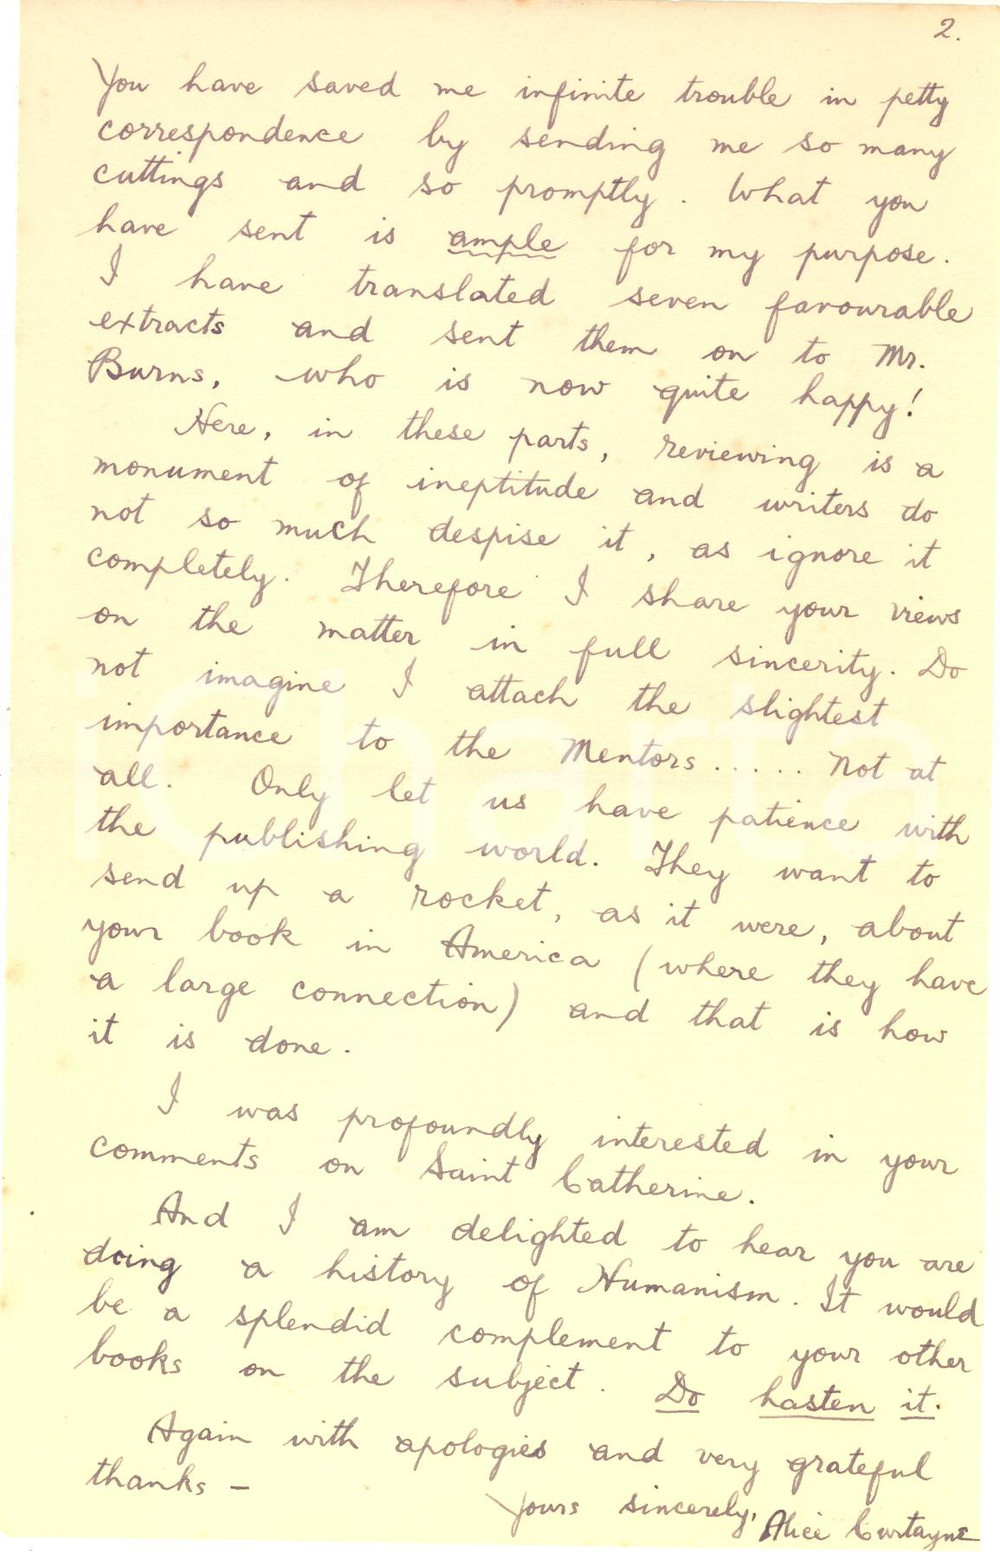 2.
You have saved me infinite trouble in petty
correspondence by sending me so many
cuttings and so promptly. What you
have sent is ample for my purpose.
I have translated seven favourable
extracts and sent them on to Mr.
Burns, who is now quite happy!
Here, in these parts, reviewing is a
monument of ineptitude and writers do
not so much despise it, as ignore it
completely. Therefore I share your views
on the matter in full sincerity. Do
not imagine I attach the slightest
importance to the Mentors..... Not at
all. Only let us have patience with
the publishing world. They want to
send up a rocket, as it were, about
your book in America (where they have
a large connection) and that is how
it is done.
I was profoundly interested in your
comments on Saint Catherine.
And I am delighted to hear you are
doing a history of Humanism. It would
be a splendid complement to your other
books on the subject. Do hasten it.
Again with apologies and very grateful
thanks —
Yours sincerely, Alice Curtayne